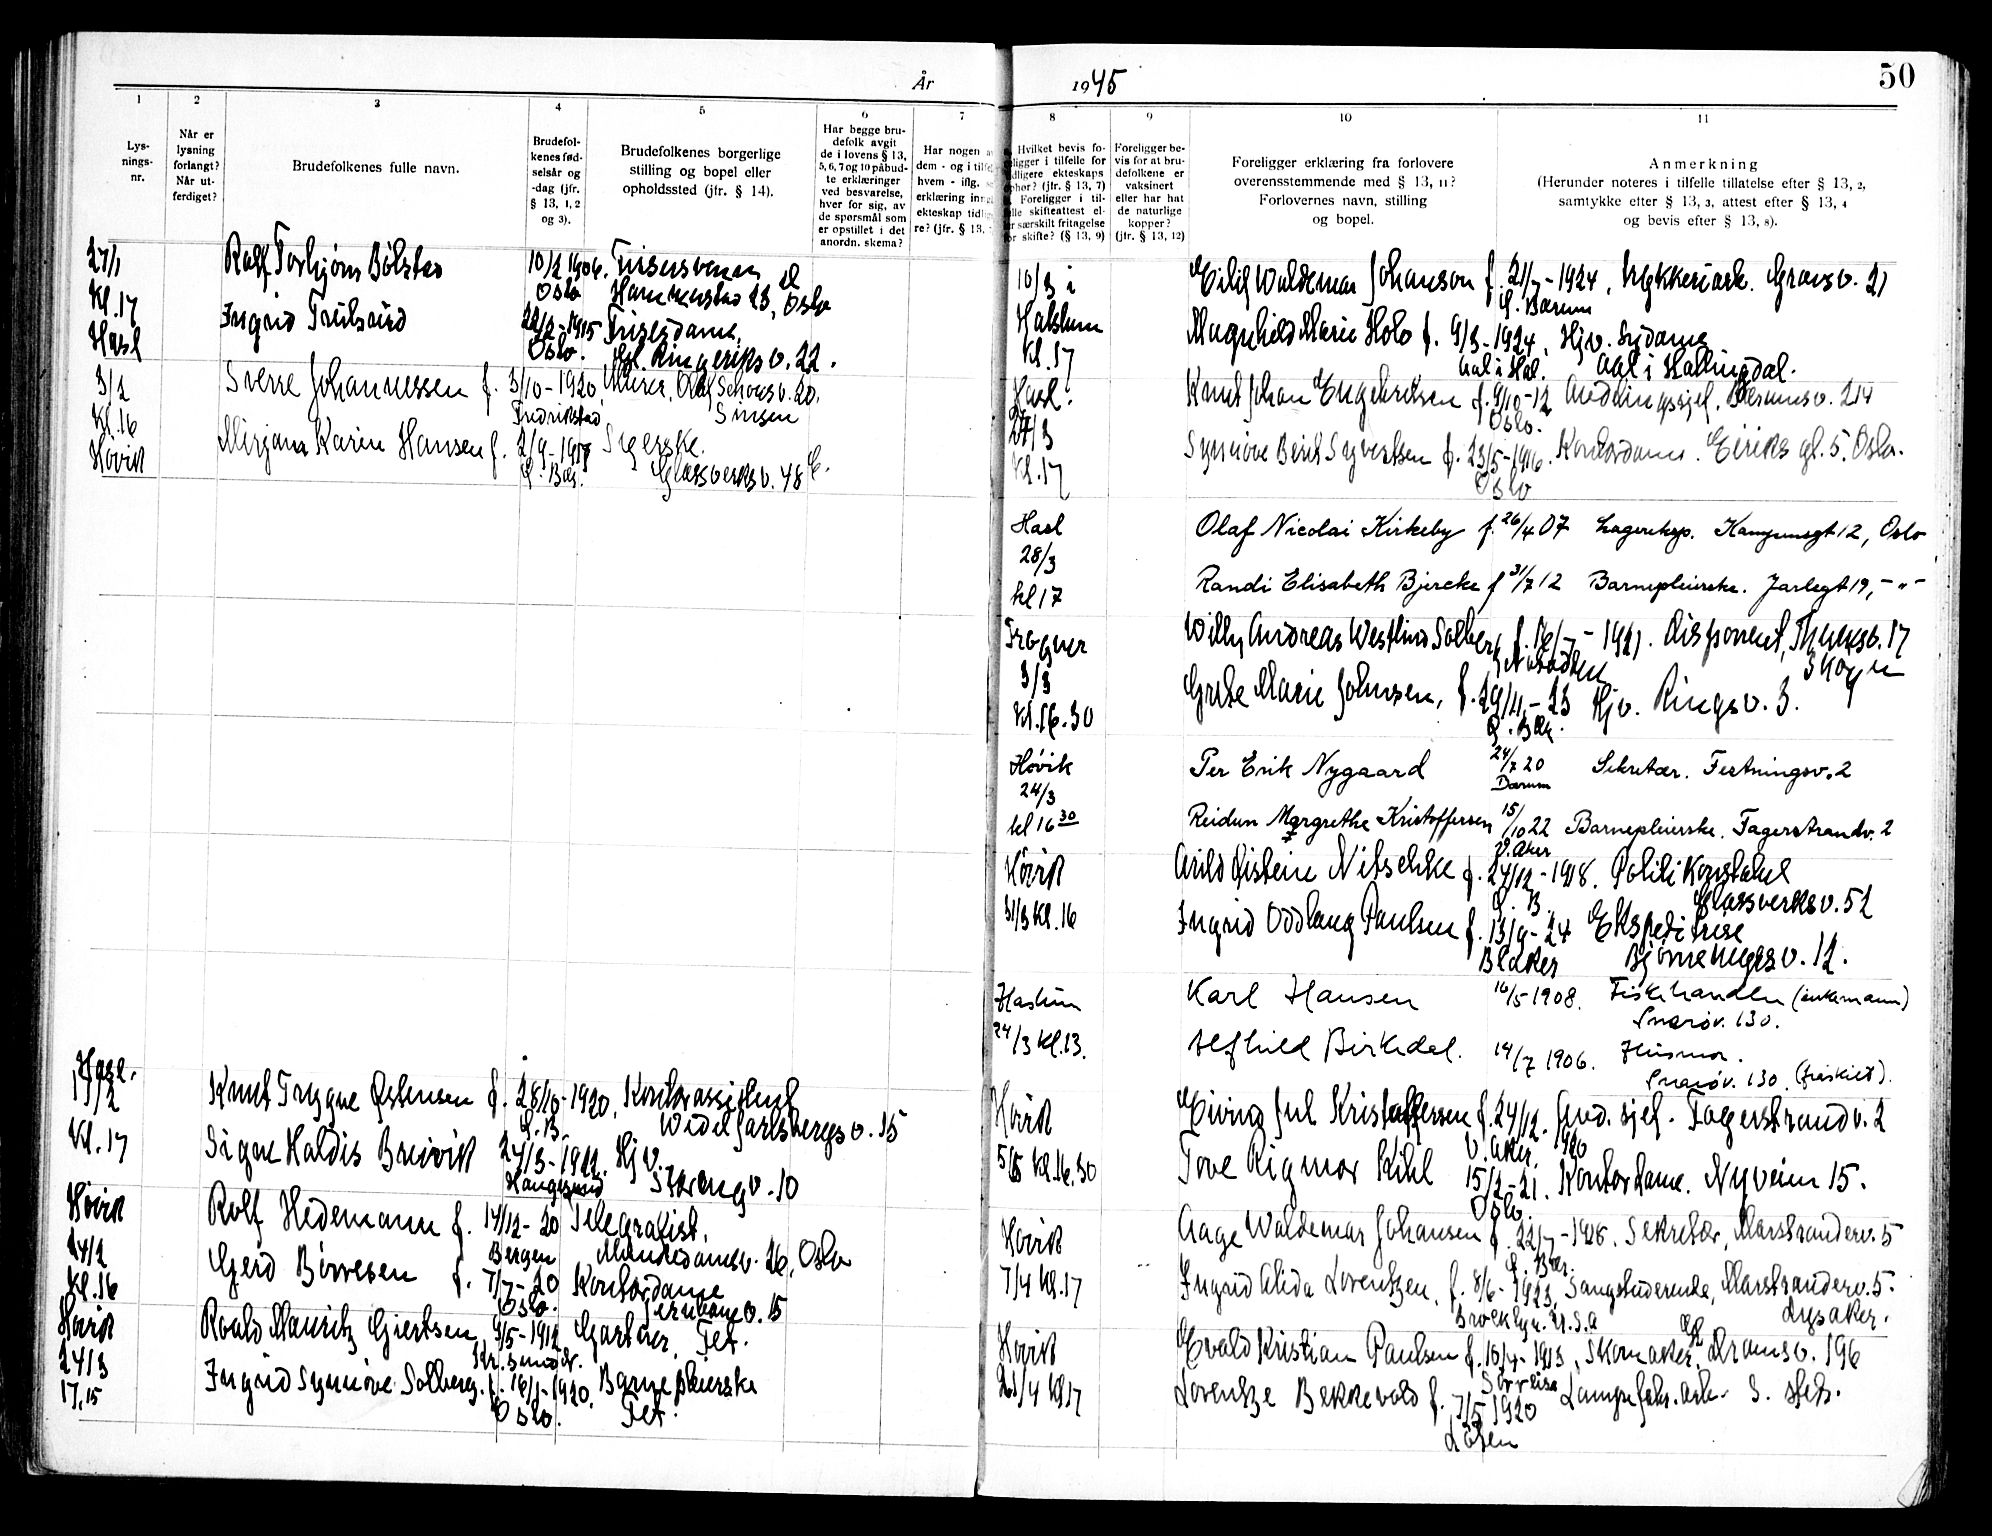 År
1
2
3
4
5
6
7
Lys-
nings-
nr.
Når er
lysning
forlangt?
Når ut-
ferdiget?
Brudefolkenes fulle navn.
Brudefol-
kenes fød-
selsår og
-dag (jfr.
§ 13, 1, 2
og 3).
Brudefolkenes borgerlige
stilling og bopel eller
opholdssted (jfr. § 14).
Har begge bru-
defolk avgit
de i lovens § 13,
5, 6, 7 og 10 påbud-
te erklæringer
ved besvarelse,
hver for sig, av
de spørsmål som
er opstillet i det
anordn. skema?
Har nogen
dem - og i
hvem - iflg.
erklæring
ekteskap
re? (jfr. § 13,
27/1 Rolf Torbjørn Bølstad 10/2 1906.
Oslo Hammerstad 23, Oslo
Kl. 17 Ingrid 22/2-1915 Frisørdame,
Hasl Oslo. Ringeriksv. 22.
3/2 Sverre Johannessen f. 3/10-1920, Murer, Olaf Schous v. 20.
Kl. 16 Fredrikstad Sinsen
Høvik Mirjam Karin Hansen f. 2/9-1917 Syerske.
Ø. Bær. Glassverksv. 48
Hasl.
17/2 Knut Trygve Østensen f. 28/10-1920, Kontorassistent
Ø. B. Wedel Jarlsbergs v. 15
Kl. 17 Signe Haldis Breivik 24/3-1922. Hjv.
Haugesund Strengv. 10
Høvik Rolf Hedemann f. 14/12-20 Telegrafist.
24/2 Bergen Munkedamsv. 26, Oslo
Kl. 16 Gerd Børresen f. 7/7-20 Kontordame
Oslo. Jernbanev. 15
Høvik Roald Mauritz Giertsen 9/5-1912 Gartner, Fet.
24/3 Kr. sund N.
17.15 Ingrid Synnøve Solberg. f. 16/1-1920, Barnepleierske
Oslo. Fet.
1945
50
8
9
10
11
Hvilket bevis fo-
religger i tilfelle for
tidligere ekteskaps
ophør? (jfr. § 13, 7)
Foreligger i til-
felle skifteattest el-
ler særskilt fritagelse
for skifte? (§ 13, 9)
Foreligger be-
vis for at bru-
defolkene er
vaksinert
eller har hat
de naturlige
kopper?
(jfr. § 13, 12)
Foreligger erklæring fra forlovere
overensstemmende med § 13, 11?
Forlovernes navn, stilling
og bopel.
Anmerkning
(Herunder noteres i tilfelle tillatelse efter § 13, 2,
samtykke efter § 13, 3, attest efter § 13, 4
og bevis efter § 13, 8).
10/3 i Eilif Waldemar Johanson f. 21/7-1924, Gransv. 21
Ø. Bærum
Haslum Magnhild Marie Holo f. 9/3-1924, Hjv. Sydame
Kl. 17 Aal i Hal. Aal i Hallingdal.
Hasl. Knut Johan Engebretsen f. 9/10-12 Avdelingssjef. Bærumsv. 214
Oslo.
24/3 Synnøve Berit Syvertsen f. 23/5-1916. Kontordame. Eiriks gt. 5, Oslo.
Kl. 17 Oslo
Hasl Olaf Nicolai Kirkeby f. 26/4 07 Lagereksp. Kampensgt 12, Oslo
28/3
kl 17 Randi Elisabeth Bjercke f 31/7 12 Barnepleierske. Jarlegt 19, -"-
Frogner Willy Andreas Westlind Solberg f. 16/7-1921. Disponent, 17
3/3 Skøyen
Kl. 16.30 Grete Marie Johnsen, f. 29/11-23 Hjv. Ringsv. 3.
Ø. Bær.
Høvik Per Erik Nygaard 24/7 20 Sekretær. Festningsv. 2
24/3 Bærum
kl 16 30 Reidun Margrethe Kristoffersen 15/10 22 Barnepleierske. Fagerstrandv. 2
V. Aker
Høvik Arild Øistein Nitschke f. 24/12-1918. Politikonstabel
Ø. B. Glassverksv. 52
31/3 Kl. 16 Ingrid Oddlaug Paulsen f. 13/9-24 Ekspeditrise
Blaker Bjørnehegsv. 12.
Haslum Karl Hansen 16/5-1908. Fiskehandler (enkemann)
Snarøv. 130.
24/3 Kl. 13. Alfhild Birkedal. 14/7 1906. Husmor.
Snarøv. 130. (fraskilt).
Høvik Eivind Jul Kristoffersen f. 24/12. Avd. sjef. Fagerstrandv. 2
V. Aker. 1920
5/5 Kl. 16.30 Tove Rigmor Kihl 15/2-21. Kontordame. Nyveien 15.
Oslo.
Høvik Aage Waldemar Johansen f. 22/7-1918. Sekretær, Marstranderv. 5
Ø. Bær.
7/4 Kl. 17 Ingrid Alida Lorentzen, f. 8/6-1923, Sangstuderende, Marstranderv. 5.
Brooklyn. U.S.A Lysaker.
Høvik Evald Kristian Paulsen f. 10/4-1913, Skomaker, Dramsv. 196
21/4 Kl 17 Lorentze Bekkevold f. 7/5 1920 Lampefabr. arb. S. steds.